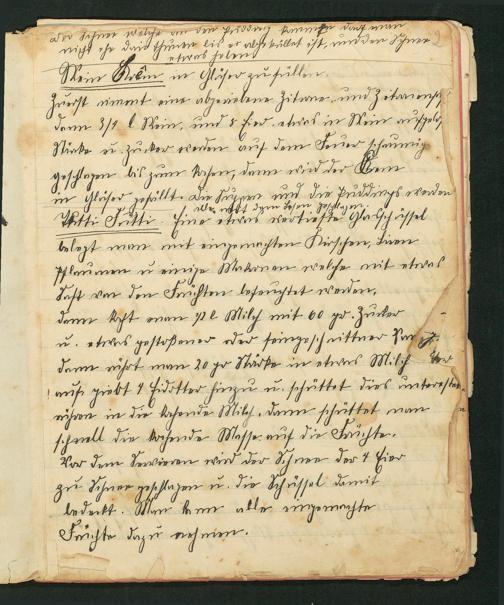 der Schnee welche an den Pudding kommt darf man
nicht ehe dazu thun bis er abgekühlt ist, und den Schnee
etwas heben
Wein Krêm in Gläser zu füllen.
Zuerst nimmt eine abgeriebene Zitrone, und Zitronensaft
dann 3/4 l Wein, und 8 Eier, etwas in Wein aufgelöste
Stärke u. Zucker werden auf dem Feuer schaumig
geschlagen bis zum kochen, dann wird der Krem
in Gläser gefüllt. die Suppen und die Puddings werden
alle mit dem Besen geschlagen.
Tutti Frutti. Eine etwas vertiefte Glasschüssel
belegt man mit eingemachten Kirschen, Birnen
Pflaumen u einige Makronen welche mit etwas
Saft von den Früchten befeuchtet werden,
dann kocht man 1/2 l Milch mit 60 gr. Zucker
u. etwas gestoßener oder feingeschnittner
dann rührt man 20 gr Stärke in etwas Milch
auf, giebt 4 Eidotter hinzu u. schüttet dies unter
rühren in die kochende Milch, dann schüttet man
schnell die kochende Masse auf die Früchte.
Vor dem Servieren wird der Schnee der 4 Eier
zu Schnee geschlagen u. die Schüssel damit
bedeckt. Man kann alle eingemachte
Früchte dazu nehmen.